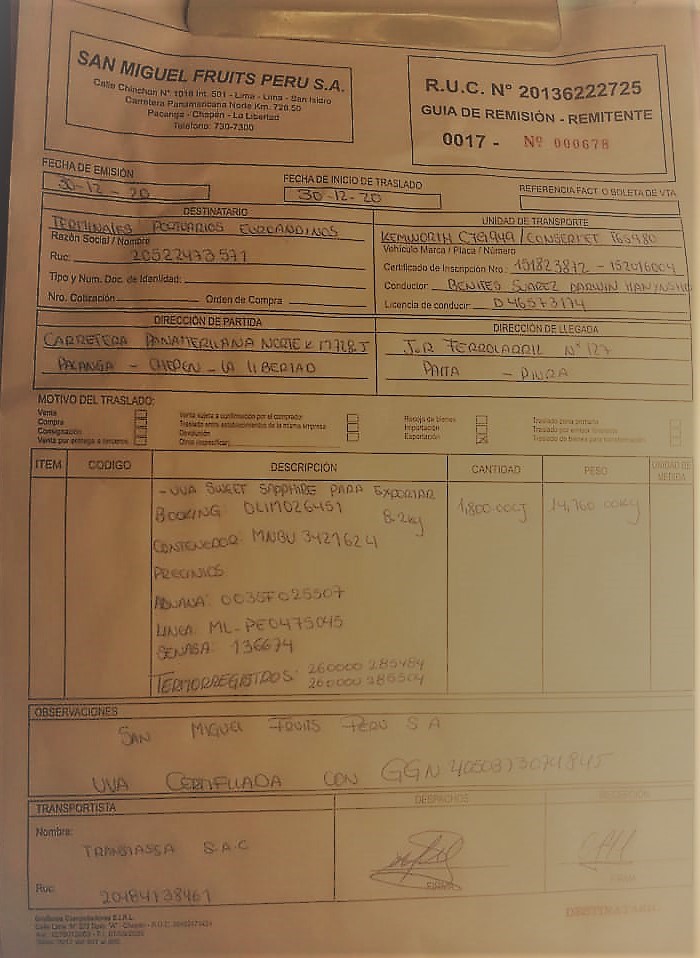 SAN MIGUEL FRUITS PERU S.A.
Calle Chinchon N° 1018 Int. 501 - Lima - Lima - San Isidro
Carretera Panamericana Norte Km. 728.50
Pacanga - Chepén - La Libertad
Telefono: 730-7300
R.U.C. N° 20136222725
GUIA DE REMISIÓN - REMITENTE
0017 - Nº 000678
FECHA DE EMISIÓN
30-12-20
FECHA DE INICIO DE TRASLADO
30-12-20
REFERENCIA FACT. O BOLETA DE VTA
DESTINATARIO
TERMINALES PORTUARIOS EUROANDINOS
Razón Social / Nombre
Ruc: 20522473571
Tipo y Num. Doc. de Identidad:
Nro. Cotización Orden de Compra
UNIDAD DE TRANSPORTE
Vehículo Marca / Placa / Número
Certificado de Inscripción Nro.: 151823872 - 152016004
Conductor BENITES SUAREZ DARWIN
Licencia de conducir: D46573174
DIRECCIÓN DE PARTIDA
CARRETERA PANAMERICANA NORTE
PACANGA - CHEPEN - LA LIBERTAD
DIRECCIÓN DE LLEGADA
JR FERROCARRIL N° 127
PAITA - PIURA
MOTIVO DEL TRASLADO:
Venta
Compra
Consignación
Venta por entrega a terceros
Venta sujeta a confirmación por el comprador
Traslado entre establecimientos de la misma empresa
Devolución
Otros (especificar)
Recojo de bienes
Importación
Exportación
Traslado zona primaria
Traslado por emisor itinerante
Traslado de bienes para transformación
ITEM CODIGO DESCRIPCIÓN CANTIDAD PESO UNIDAD DE MEDIDA
- UVA SWEET SAPPHIRE PARA EXPORTAR
BOOKING 8.2kg 1,800.00CJ 14,760.00KG
CONTENEDOR: MNBU 3421624
PRECINTOS
ADUANA: 0035F025507
LINEA: ML-PE0475045
SENASA: 136674
TERMORREGISTROS: 260000 285484
260000 285504
OBSERVACIONES
SAN MIGUEL FRUITS PERU S A
UVA CERTIFICADA CON GGN 4050373074845
TRANSPORTISTA
DESPACHOS
Nombre:
S.A.C
Ruc: 20484138461
FIRMA
DESTINATARIO